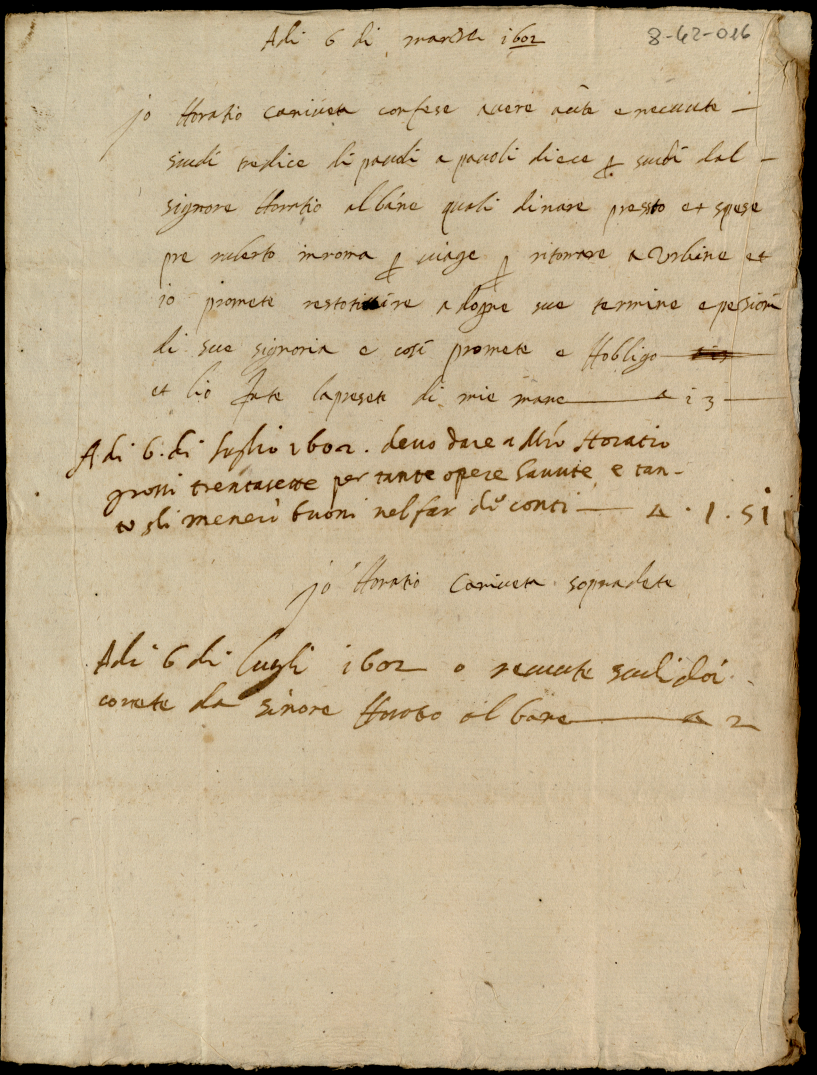 Adi 6 di marzo 1602
8-62-016
jo Horatio Cariveta confese avere aute e recevute
scudi tredice di pauli a pauoli diece p scudi dal
signore Horatio albane quali dinare presto et spese
pre in roma p viage p ritornare a Urbine et
io promete restotuire a dogne sue termine e
di sue signoria e così promete e Hobligo
et lio fate la presete di mie mane ▵ 13
Adi 6. di luglio 1602. devo dare a Mro Horatio
grossi trentasette per tante opere havute, e tan-
to gli menerò buoni nel far di conti ▵ . 1 . 51
jo Horatio Cariveta sopradete
Adi 6 di lugli 1602 o recevute scudi doi
corete da sinore Horatio albane ▵ 2